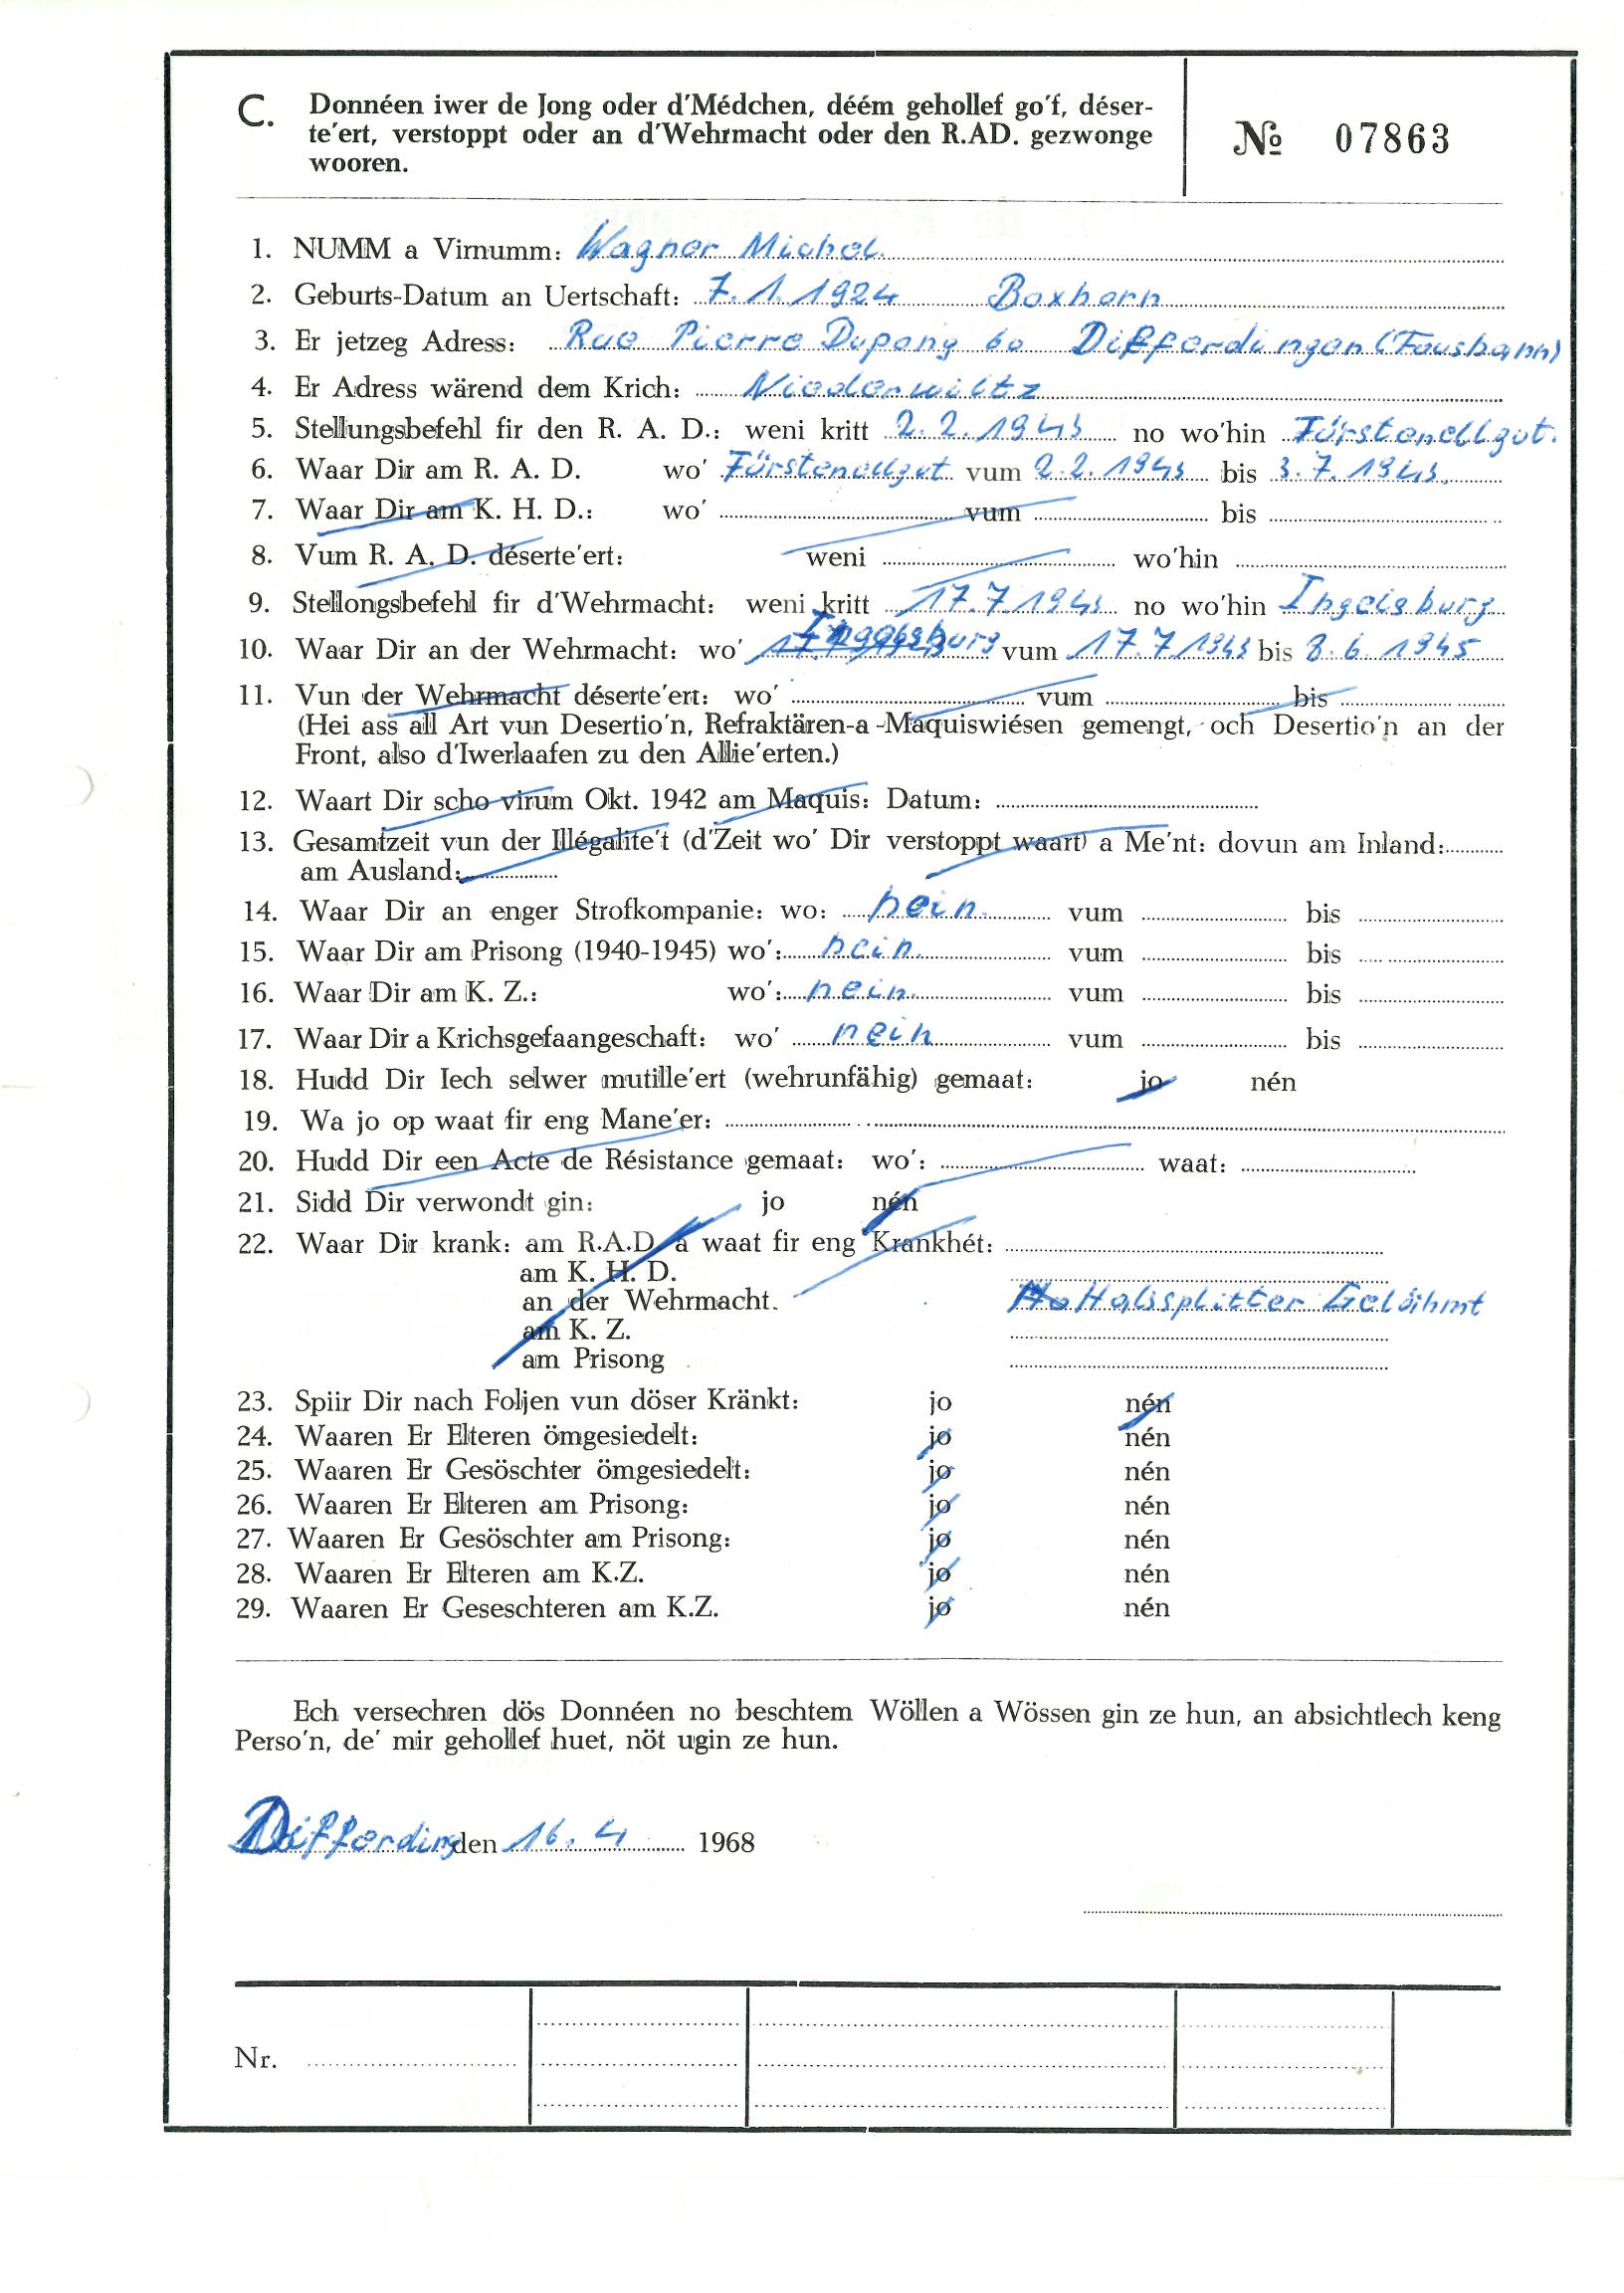 C. Donnéen iwer de Jong oder d'Médchen, déém gehollef go'f, déser-
te'ert, verstoppt oder an d'Wehrmacht oder den R.AD. gezwonge
wooren.
№ 07863
1. NUMM a Virnumm: Wagner Michel
2. Geburts-Datum an Uertschaft: 7.1.1924 Boxhorn
3. Er jetzeg Adress: Rue Pierre Dupong 60 Differdingen (Fousbann)
4. Er Adress wärend dem Krich: Niederwiltz
5. Stellungsbefehl fir den R. A. D.: weni kritt 2.2.1943 no wo'hin Fürstenellgut.
6. Waar Dir am R. A. D. wo' Fürstenellgut vum 2.2.1943 bis 3.7.1943.
7. Waar Dir am K. H. D.: wo' vum bis
8. Vum R. A. D. déserte'ert: weni wo'hin
9. Stellongsbefehl fir d'Wehrmacht: weni kritt 17.7 1943 no wo'hin Ingelsburg
10. Waar Dir an der Wehrmacht: wo' vum 17.7 1943 bis 8.6.1945
11. Vun der Wehrmacht déserte'ert: wo' vum bis
(Hei ass all Art vun Desertio'n, Refraktären-a-Maquiswiésen gemengt, och Desertio'n an der
Front, also d'Iwerlaafen zu den Allie'erten.)
12. Waart Dir scho virum Okt. 1942 am Maquis: Datum:
13. Gesamtzeit vun der Illégalite't (d'Zeit wo' Dir verstoppt waart) a Me'nt: dovun am Inland:
am Ausland:
14. Waar Dir an enger Strofkompanie: wo: nein. vum bis
15. Waar Dir am Prisong (1940-1945) wo': nein. vum bis
16. Waar Dir am K. Z.: wo': nein. vum bis
17. Waar Dir a Krichsgefaangeschaft: wo' nein vum bis
18. Hudd Dir Iech selwer mutille'ert (wehrunfähig) gemaat: jo nén
19. Wa jo op waat fir eng Mane'er:
20. Hudd Dir een Acte de Résistance gemaat: wo': waat:
21. Sidd Dir verwondt gin: jo nén
22. Waar Dir krank: am R.A.D. a waat fir eng Krankhét:
am K. H. D.
an der Wehrmacht. Halssplitter Gelähmt
am K. Z.
am Prisong
23. Spiir Dir nach Foljen vun döser Kränkt: jo nén
24. Waaren Er Elteren ömgesiedelt: jo nén
25. Waaren Er Gesöschter ömgesiedelt: jo nén
26. Waaren Er Elteren am Prisong: jo nén
27. Waaren Er Gesöschter am Prisong: jo nén
28. Waaren Er Elteren am K.Z. jo nén
29. Waaren Er Geseschteren am K.Z. jo nén
Ech versechren dös Donnéen no beschtem Wöllen a Wössen gin ze hun, an absichtlech keng
Perso'n, de' mir gehollef huet, nöt ugin ze hun.
Differding den 16.4 1968
Nr.